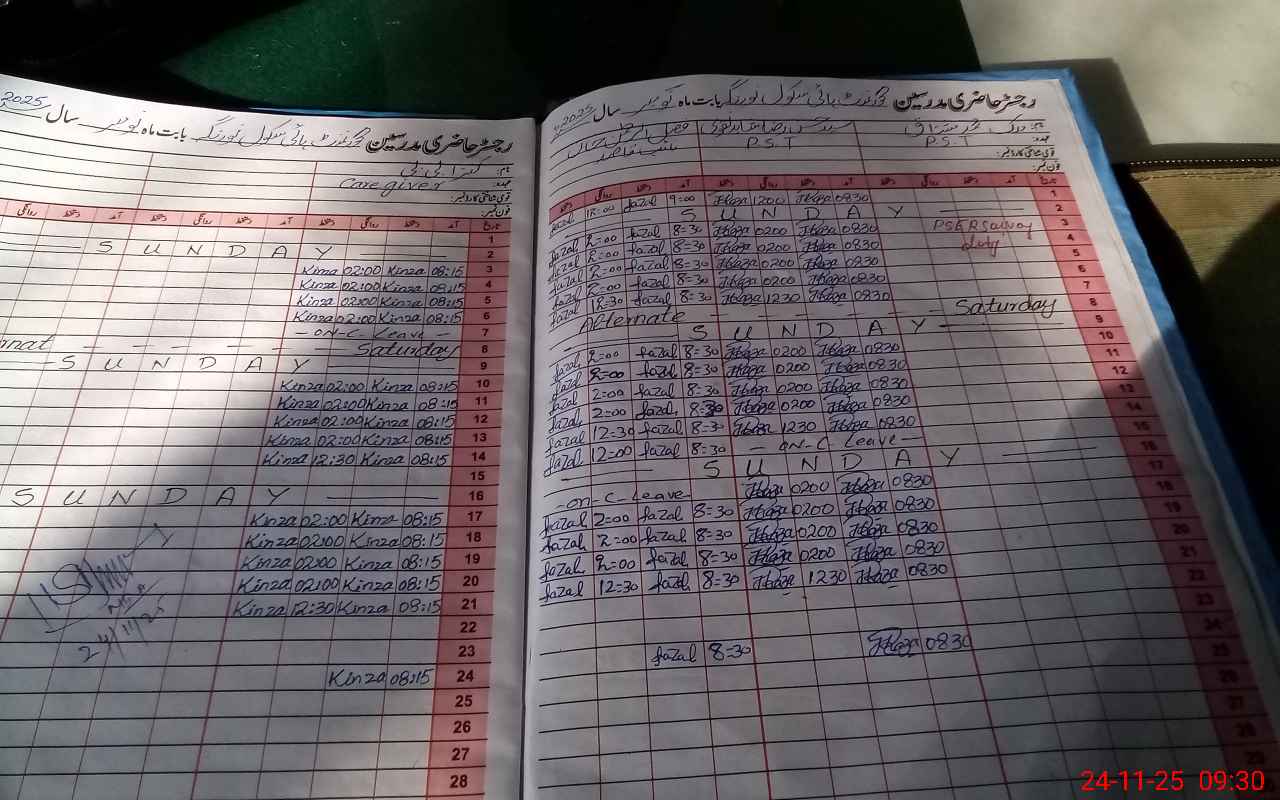 رجسٹر حاضری مدرسین گورنمنٹ ہائی سکول نورنگ بابت ماہ نومبر سال 2025
نام: کنزا بی بی
عہدہ: Care giver
قومی شناختی کارڈ نمبر:
فون نمبر:
تاریخ آمد دستخط روانگی دستخط آمد دستخط روانگی دستخط آمد دستخط روانگی
1
2 SUNDAY
3 08:15 Kinza 02:00 Kinza
4 08:15 Kinza 02:00 Kinza
5 08:15 Kinza 02:00 Kinza
6 08:15 Kinza 02:00 Kinza
7 - ON-C-Leave -
8 Saturday
9 SUNDAY
10 08:15 Kinza 02:00 Kinza
11 08:15 Kinza 02:00 Kinza
12 08:15 Kinza 02:00 Kinza
13 08:15 Kinza 02:00 Kinza
14 08:15 Kinza 12:30 Kinza
15
16 SUNDAY
17 08:15 Kinza 02:00 Kinza
18 08:15 Kinza 02:00 Kinza
19 08:15 Kinza 02:00 Kinza
20 08:15 Kinza 02:00 Kinza
21 08:15 Kinza 12:30 Kinza
22
23
24 08:15 Kinza
25
26
27
28
24/11/25
رجسٹر حاضری مدرسین گورنمنٹ ہائی سکول نورنگ بابت ماہ نومبر سال 2025
نام:
عہدہ: P.S.T P.S.T
قومی شناختی کارڈ نمبر:
فون نمبر:
تاریخ آمد دستخط روانگی دستخط آمد دستخط روانگی دستخط آمد دستخط روانگی دستخط
1 0830 1200 9=00 fazal 12=00 fazal
2 SUNDAY
3 PSER Survey duty 0830 0200 8=30 fazal 2=00 fazal
4 0830 0200 8=30 fazal 2=00 fazal
5 0830 0200 8=30 fazal 2=00 fazal
6 0830 0200 8=30 fazal 2=00 fazal
7 0830 1230 8=30 fazal 12=30 fazal
8 Alternate Saturday
9 SUNDAY
10 0830 0200 8=30 fazal 2=00 fazal
11 0830 0200 8=30 fazal 2=00 fazal
12 0830 0200 8=30 fazal 2=00 fazal
13 0830 0200 8=30 fazal 2=00 fazal
14 0830 1230 8=30 fazal 12=30 fazal
15 - ON-C-Leave - 8=30 fazal 12=00 fazal
16 SUNDAY
17 0830 0200 - on-C-Leave
18 0830 0200 8=30 fazal 2=00 fazal
19 0830 0200 8=30 fazal 2=00 fazal
20 0830 0200 8=30 fazal 2=00 fazal
21 0830 1230 8=30 fazal 12=30 fazal
22
23
24 0830 8=30 fazal
25
26
27
28
29
24-11-25 09:30